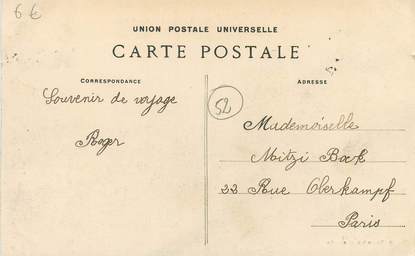 6 €
UNION POSTALE UNIVERSELLE
CARTE POSTALE
CORRESPONDANCE
ADRESSE
Souvenir de voyage
Roger
52
Mademoiselle
Mitzi Bock
22 Rue Oberkampf
Paris